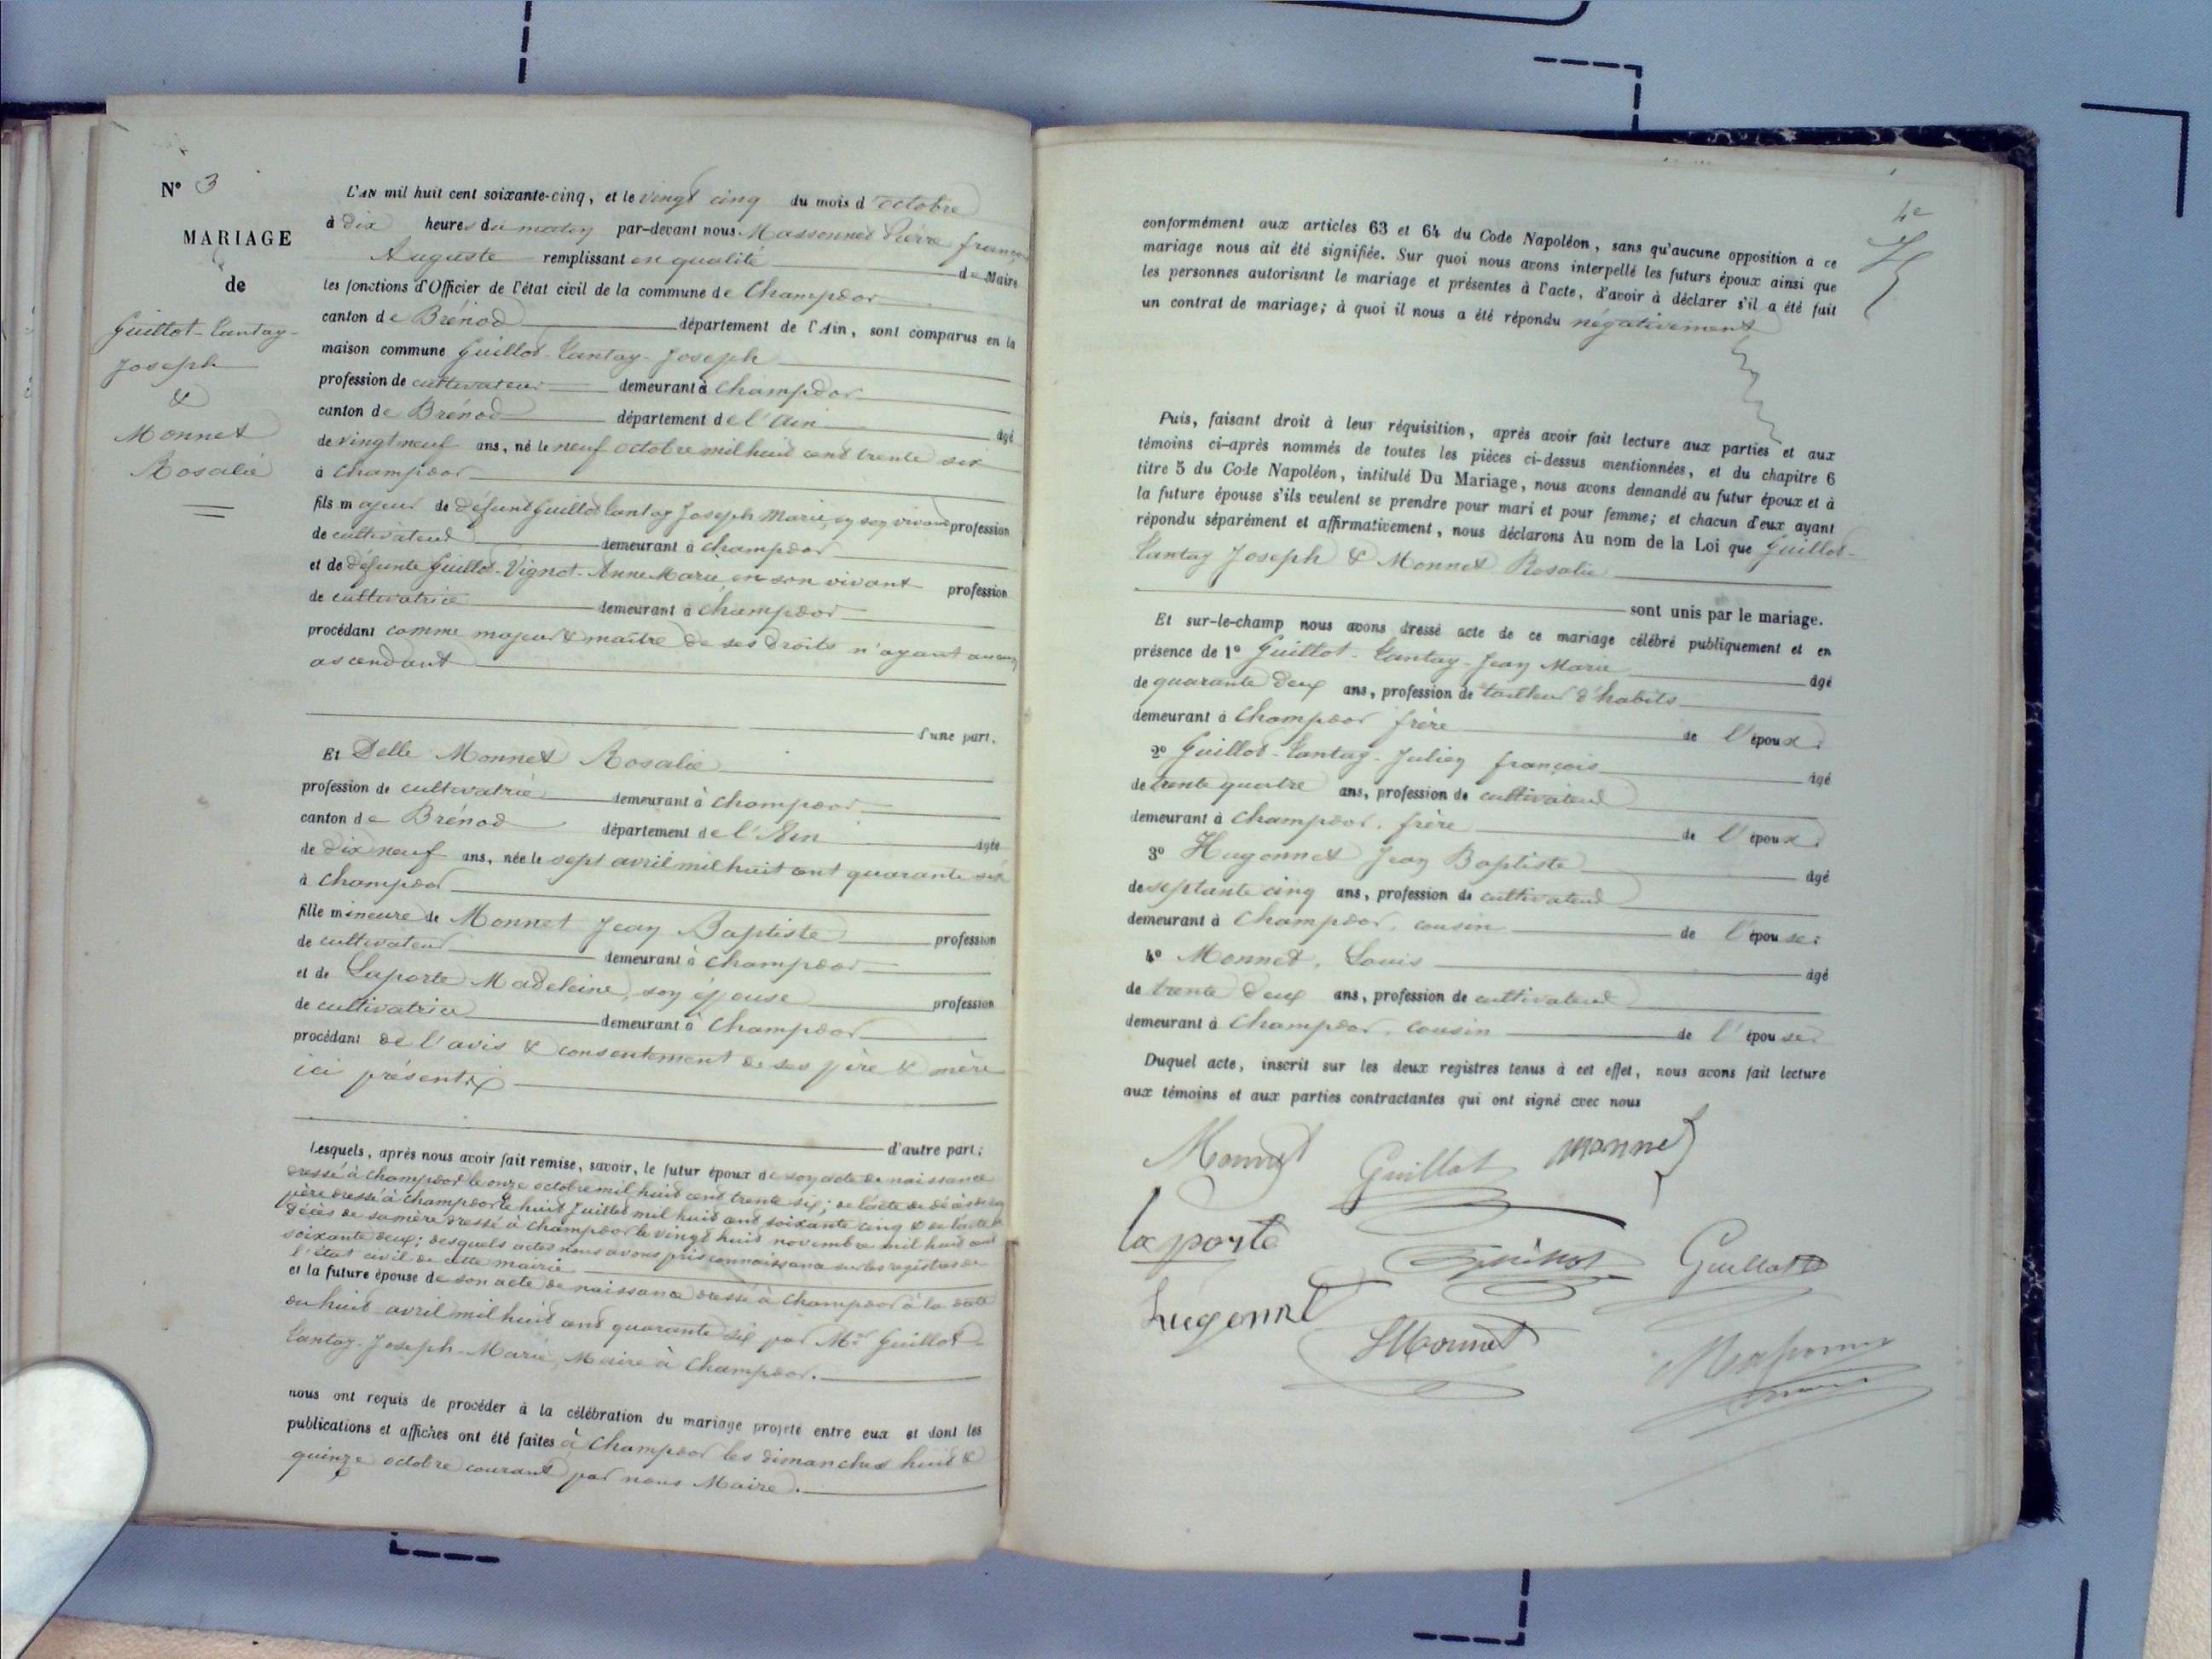 N° 3
MARIAGE
de
Guillot-Lantay-
Joseph
&
Monnet
Rosalie
L'AN mil huit cent soixante-cinq, et le vingt cinq du mois d'octobre
à dix heures du matin par-devant nous Massonnet Pierre françois
Auguste remplissant en qualité de Maire
les fonctions d'Officier de l'état civil de la commune de Champdor
canton de Brénod département de l'Ain, sont comparus en la
maison commune Guillot-Lantay-Joseph
profession de cultivateur demeurant à Champdor
canton de Brénod département de l'Ain âgé
de vingt neuf ans, né le neuf octobre mil huit cent trente six
à Champdor
fils majeur de défunt Guillot Lantay Joseph Marie, en son vivant profession
de cultivateur demeurant à Champdor
et de défunte Guillot-Vignot-Anne Marie, en son vivant profession
de cultivatrice demeurant à Champdor
procédant comme majeur & maître de ses droits n'ayant aucun
ascendant
d'une part.
Et Delle Monnet Rosalie
profession de cultivatrice demeurant à Champdor
canton de Brénod département de l'Ain âgée
de dix neuf ans, née le sept avril mil huit cent quarante six
à Champdor
fille mineure de Monnet Jean Baptiste profession
de cultivateur demeurant à Champdor
et de Laporte Madeleine, son épouse profession
de cultivatrice demeurant à Champdor
procédant de l'avis & consentement de ses père & mère
ici présents
d'autre part;
Lesquels, après nous avoir fait remise, savoir, le futur époux de son acte de naissance
dressé à Champdor le onze octobre mil huit cent trente six; de l'acte de décès de son
père dressé à Champdor le huit Juillet mil huit cent soixante cinq & de l'acte de
décès de sa mère dressé à Champdor le vingt huit novembre mil huit cent
soixante deux; desquels actes nous avons pris connaissance sur les registres de
l'état civil de cette mairie
et la future épouse de son acte de naissance dressé à Champdor à la date
du huit avril mil huit cent quarante six par Mr Guillot-
Lantay-Joseph-Marie, Maire à Champdor.
nous ont requis de procéder à la célébration du mariage projeté entre eux et dont les
publications et affiches ont été faites à Champdor les dimanches huit &
quinze octobre courant par nous Maire.
4e
conformément aux articles 63 et 64 du Code Napoléon, sans qu'aucune opposition à ce
mariage nous ait été signifiée. Sur quoi nous avons interpellé les futurs époux ainsi que
les personnes autorisant le mariage et présentes à l'acte, d'avoir à déclarer s'il a été fait
un contrat de mariage; à quoi il nous a été répondu négativement
Puis, faisant droit à leur réquisition, après avoir fait lecture aux parties et aux
témoins ci-après nommés de toutes les pièces ci-dessus mentionnées, et du chapitre 6
titre 5 du Code Napoléon, intitulé Du Mariage, nous avons demandé au futur époux et à
la future épouse s'ils veulent se prendre pour mari et pour femme; et chacun d'eux ayant
répondu séparément et affirmativement, nous déclarons Au nom de la Loi que Guillot-
Lantay Joseph & Monnet Rosalie
sont unis par le mariage.
Et sur-le-champ nous avons dressé acte de ce mariage célébré publiquement et en
présence de 1° Guillot-Lantay-Jean Marie âgé
de quarante deux ans, profession de tailleur d'habits
demeurant à Champdor frère de l'époux.
2° Guillot-Lantay-Julien françois âgé
de trente quatre ans, profession de cultivateur
demeurant à Champdor, frère de l'époux.
3° Hugonnet Jean Baptiste âgé
de septante cinq ans, profession de cultivateur
demeurant à Champdor, cousin de l'épouse:
4° Monnet, Louis âgé
de trente deux ans, profession de cultivateur
demeurant à Champdor, cousin de l'épouse
Duquel acte, inscrit sur les deux registres tenus à cet effet, nous avons fait lecture
aux témoins et aux parties contractantes qui ont signé avec nous
Monnet Guillot monnet
la porte Guillot Guillot
hugonnet LMonnet